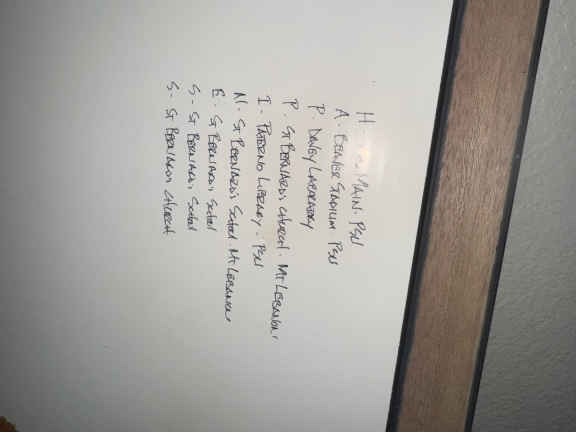 H - MAIN - PSU
A - BEAVER STADIUM PSU
P - DAVEY LABORATORY
P - ST BERNARDS CHURCH - MT LEBANON
I - PATERNO LIBRARY - PSU
N - ST BERNARDS School - MT LEBANON
E - ST BERNARDS School
S - ST BERNARDS School
S - ST BERNARDS CHURCH